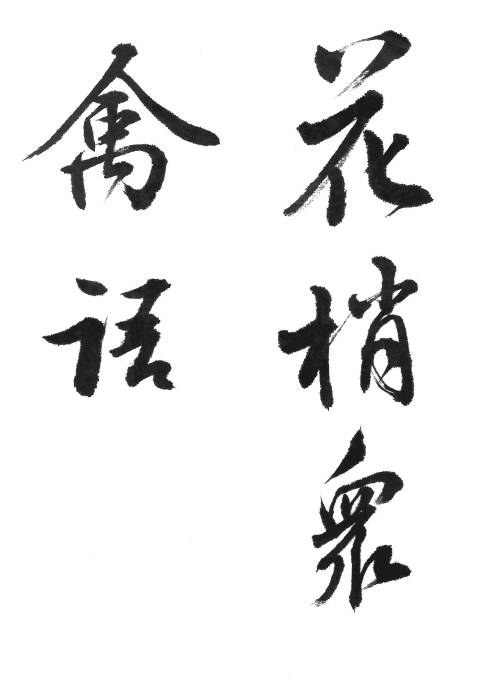 花梢衆
禽語